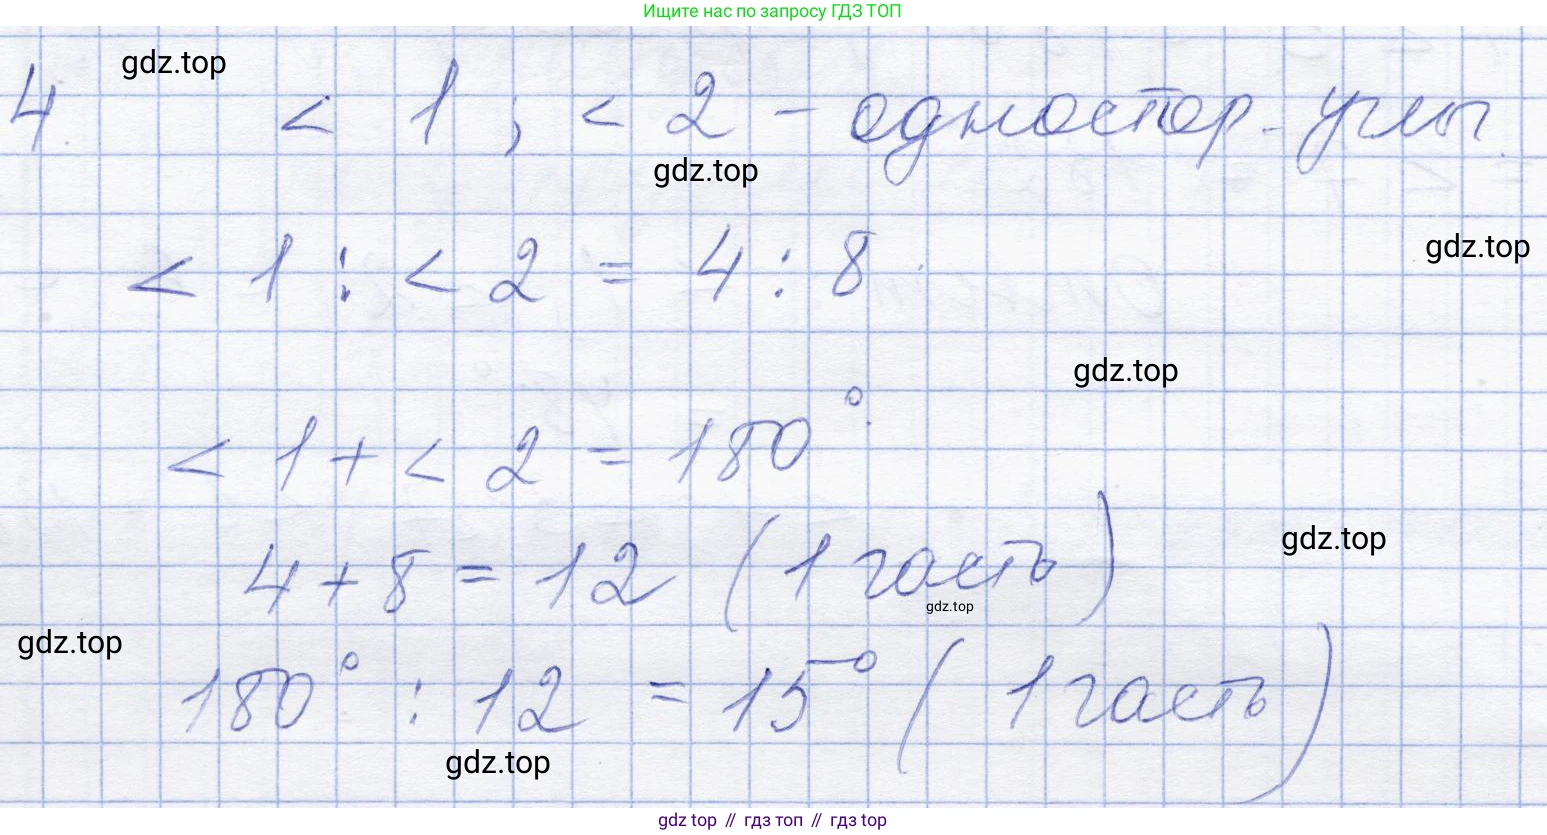 Ищите нас по запросу ГДЗ ТОП
gdz.top
4 < 1 ; < 2 - одностор. углы
gdz.top
< 1 : < 2 = 4 : 8
gdz.top
gdz.top
< 1 + < 2 = 180°
gdz.top
4 + 8 = 12 (1 часть)
gdz.top
gdz.top
180° : 12 = 15° (1 часть)
gdz.top
gdz top // гдз топ // гдз top